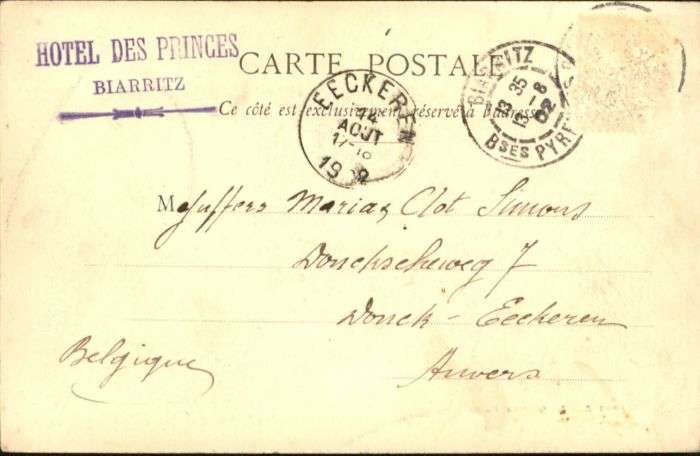 HOTEL DES PRINCES
BIARRITZ
CARTE POSTALE
Ce côté est exclusivement réservé à l'adresse
EECKEREN
14
AOUT
17-18
1902
BIARRITZ
13 35
13 -8
02
BSES PYRE
Mejuffers Maria & Clot Simons
Donckscheweg 7
Donck - Eeckeren
Anvers
Belgique